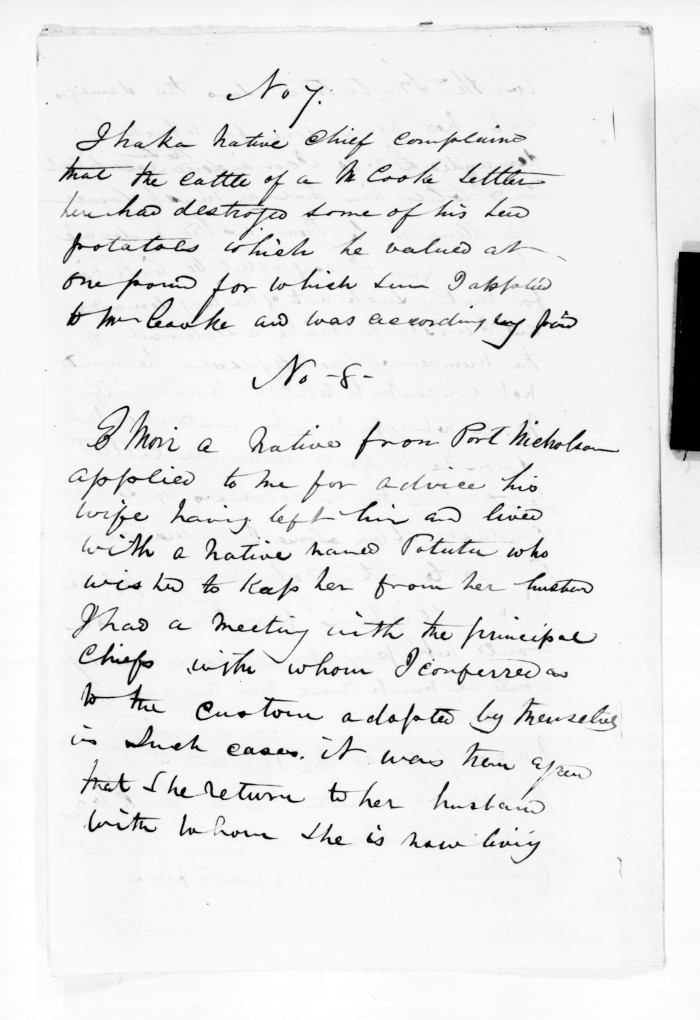 No 7.
Ihaka Native Chief complains
that the cattle of a Mr Cooke Settler
here had destroyed some of his Seed
potatoes which he valued at
One pound for which Sum I applied
to Mr Cooke and was accordingly paid
No -8-
E Mori a Native from Port Nicholson
applied to me for advice his
wife having left him and lived
with a Native named Potutu who
wished to Keep her from her husband
I had a meeting with the principal
Chiefs with whom I conferred as
to the custom adapted by themselves
in Such cases. it was then agreed
that She return to her husband
with whom She is now living